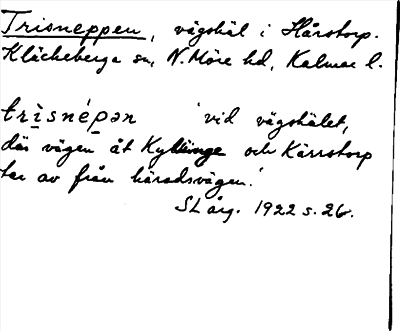 Trisneppen, vägskäl i Hårstorp.
Kläckeberga sn, N. Möre hd, Kalmar l.
trìsnépən 'vid vägskälet,
där vägen åt Kyllinge och Kårstorp
tar av från häradsvägen.'
SL årg. 1922 s. 26.